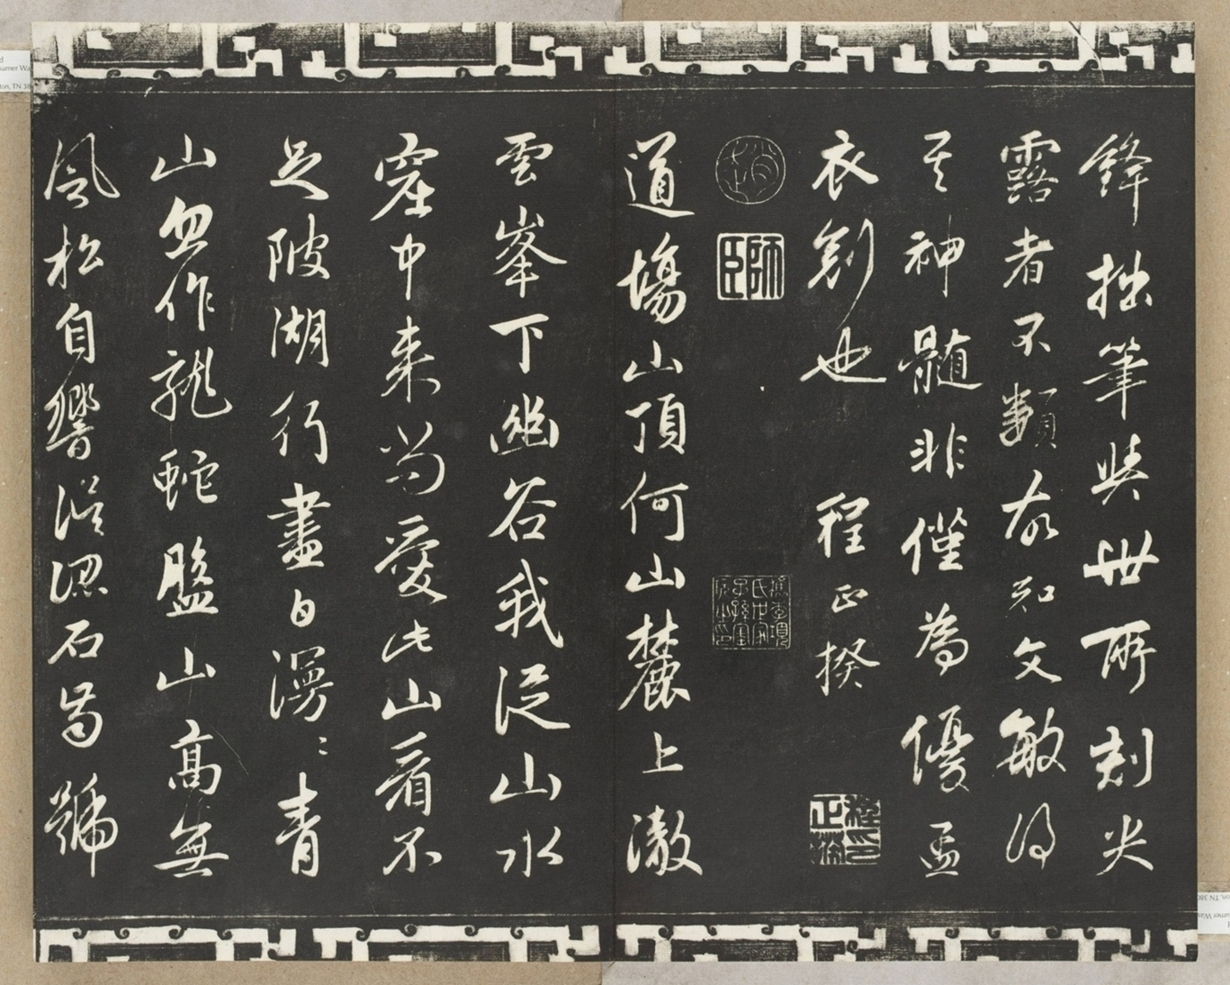 鋒拙筆與世所刻尖
露者不類故知文敏得
其神髓非僅為優孟
衣劍也 程正揆
師臣
道場山頂何山麓上澈
雲峯下幽谷我從山水
窟中来尚愛此山看不
足陂湖行盡白漫〻青
山忽作龍蛇盤山高無
風松自響誤認石為號